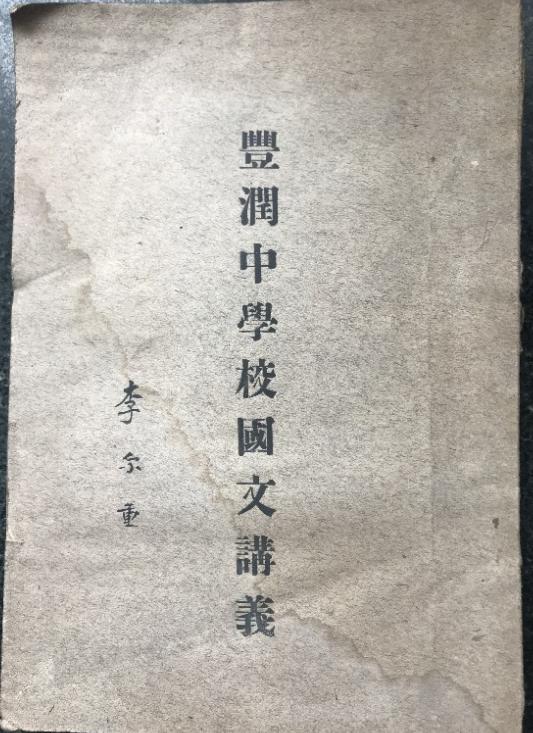 豐潤中學校國文講義
李尔重